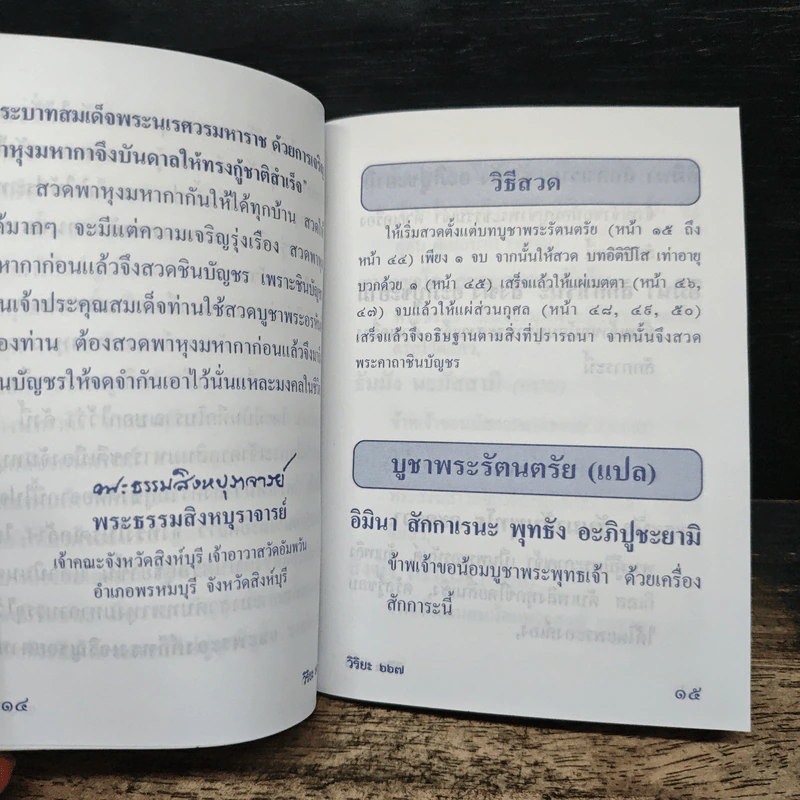 ระบาทสมเด็จพระนเรศวรมหาราช ด้วยการเจริญ
าหุงมหากาจึงบันดาลให้ทรงกู้ชาติสำเร็จ"
สวดพาหุงมหากากันให้ได้ทุกบ้าน สวดได้
ด้มากๆ จะมีแต่ความเจริญรุ่งเรือง สวดพาหุ
มหากาก่อนแล้วจึงสวดชินบัญชร เพราะชินบัญช
นเจ้าประคุณสมเด็จท่านใช้สวดบูชาพระอรหัน
องท่าน ต้องสวดพาหุงมหากาก่อนแล้วจึงมา
นบัญชรให้จดจำกันเอาไว้นั่นแหละมงคลในชีวิ
พระธรรมสิงหบุราจารย์
พระธรรมสิงหบุราจารย์
เจ้าคณะจังหวัดสิงห์บุรี เจ้าอาวาสวัดอัมพวัน
อำเภอพรหมบุรี จังหวัดสิงห์บุรี
วิริยะ
๑๔
วิธีสวด
ให้เริ่มสวดตั้งแต่บทบูชาพระรัตนตรัย (หน้า ๑๕ ถึง
หน้า ๔๔) เพียง ๑ จบ จากนั้นให้สวด บทอิติปิโส เท่าอายุ
บวกด้วย ๑ (หน้า ๔๕) เสร็จแล้วให้แผ่เมตตา (หน้า ๔๖,
๔๗) จบแล้วให้แผ่ส่วนกุศล (หน้า ๔๘, ๔๙, ๕๐)
เสร็จแล้วจึงอธิษฐานตามสิ่งที่ปรารถนา จากนั้นจึงสวด
พระคาถาชินบัญชร
บูชาพระรัตนตรัย (แปล)
อิมินา สักกาเรนะ พุทธัง อะภิปูชะยามิ
ข้าพเจ้าขอน้อมบูชาพระพุทธเจ้า ด้วยเครื่อง
สักการะนี้
วิริยะ ๒๒๗
๑๕